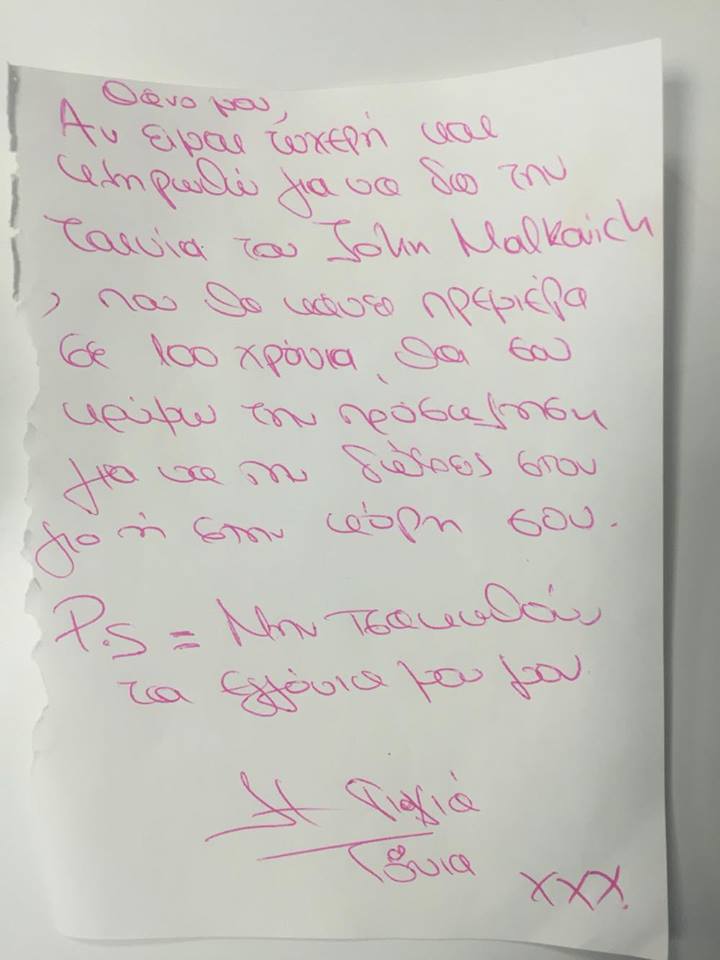 Θάνο μου,
Αν είμαι τυχερή και
κληρωθώ για να δω την
ταινία του John Malkovich
, που θα κάνει πρεμιέρα
σε 100 χρόνια, θα σου
κρύψω την πρόσκληση
για να τη δώσεις στον
γιο ή στην κόρη σου.
P.S = Μην τσακωθούν
τα εγγόνια μου μου
Η Γιαγιά
Τόνια
XXX.